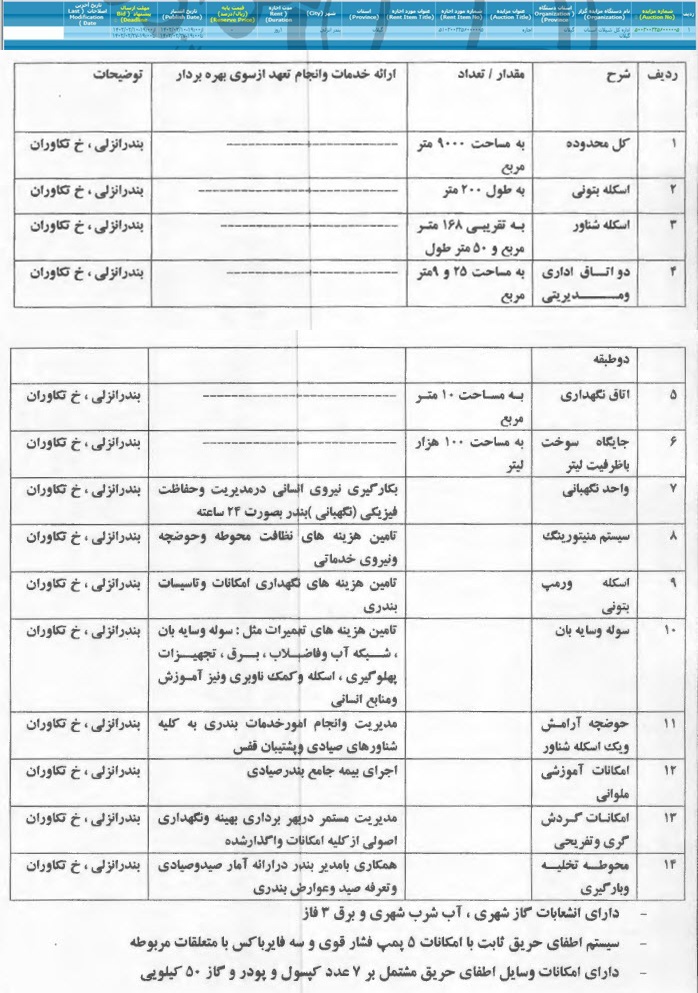 شماره مزایده (Auction No)
نام دستگاه مزایده گزار (Organization)
استان دستگاه Organization) Province)
عنوان مزایده (Auction Title)
شماره مورد اجاره (Rent Item No)
عنوان مورد اجاره (Rent Item Title)
استان (Province)
شهر (City)
مدت اجاره Rent) Duration)
قیمت پایه (ریال/درصد) (Reserve Price)
تاریخ انتشار (Publish Date)
مهلت ارسال پیشنهاد (Bid Deadline)
تاریخ آخرین اصلاحات (Last Modification Date)
گیلان
اجاره
گیلان
بندر انزلی
ردیف شرح مقدار / تعداد ارائه خدمات وانجام تعهد ازسوی بهره بردار توضیحات
۱ کل محدوده به مساحت ۹۰۰۰ متر بندرانزلی ، خ تکاوران
مربع
۲ اسکله بتونی به طول ۲۰۰ متر بندرانزلی ، خ تکاوران
۳ اسکله شناور به تقریبی ۱۶۸ متر بندرانزلی ، خ تکاوران
مربع و ۵۰ متر طول
۴ دو اتاق اداری به مساحت ۲۵ و ۹متر بندرانزلی ، خ تکاوران
ومدیریتی مربع
دوطبقه
۵ اتاق نگهداری به مساحت ۱۰ متر بندرانزلی ، خ تکاوران
مربع
۶ جایگاه سوخت به مساحت ۱۰۰ هزار بندرانزلی ، خ تکاوران
باظرفیت لیتر لیتر
۷ واحد نگهبانی بکارگیری نیروی انسانی درمدیریت وحفاظت بندرانزلی ، خ تکاوران
فیزیکی (نگهبانی )بندر بصورت ۲۴ ساعته
۸ سیستم منیتورینگ تامین هزینه های نظافت محوطه وحوضچه بندرانزلی ، خ تکاوران
ونیروی خدماتی
۹ اسکله ورمپ تامین هزینه های نگهداری امکانات وتاسیسات بندرانزلی ، خ تکاوران
بتونی بندری
۱۰ سوله وسایه بان تامین هزینه های تعمیرات مثل : سوله وسایه بان بندرانزلی ، خ تکاوران
، شبکه آب وفاضلاب ، برق ، تجهیزات
پهلوگیری ، اسکله وکمک ناوبری ونیز آموزش
ومنابع انسانی
۱۱ حوضچه آرامش مدیریت وانجام امورخدمات بندری به کلیه بندرانزلی ، خ تکاوران
ویک اسکله شناور شناورهای صیادی وپشتیبان قفس
۱۲ امکانات آموزشی اجرای بیمه جامع بندرصیادی بندرانزلی ، خ تکاوران
ملوانی
۱۳ امکانات گردش مدیریت مستمر دربهر برداری بهینه ونگهداری بندرانزلی ، خ تکاوران
گری وتفریحی اصولی ازکلیه امکانات واگذارشده
۱۴ محوطه تخلیه همکاری بامدیر بندر درارائه آمار صیدوصیادی بندرانزلی ، خ تکاوران
وبارگیری وتعرفه صید وعوارض بندری
- دارای انشعابات گاز شهری ، آب شرب شهری و برق ۳ فاز
- سیستم اطفای حریق ثابت با امکانات ۵ پمپ فشار قوی و سه فایرباکس با متعلقات مربوطه
- دارای امکانات وسایل اطفای حریق مشتمل بر ۷ عدد کپسول و پودر و گاز ۵۰ کیلویی